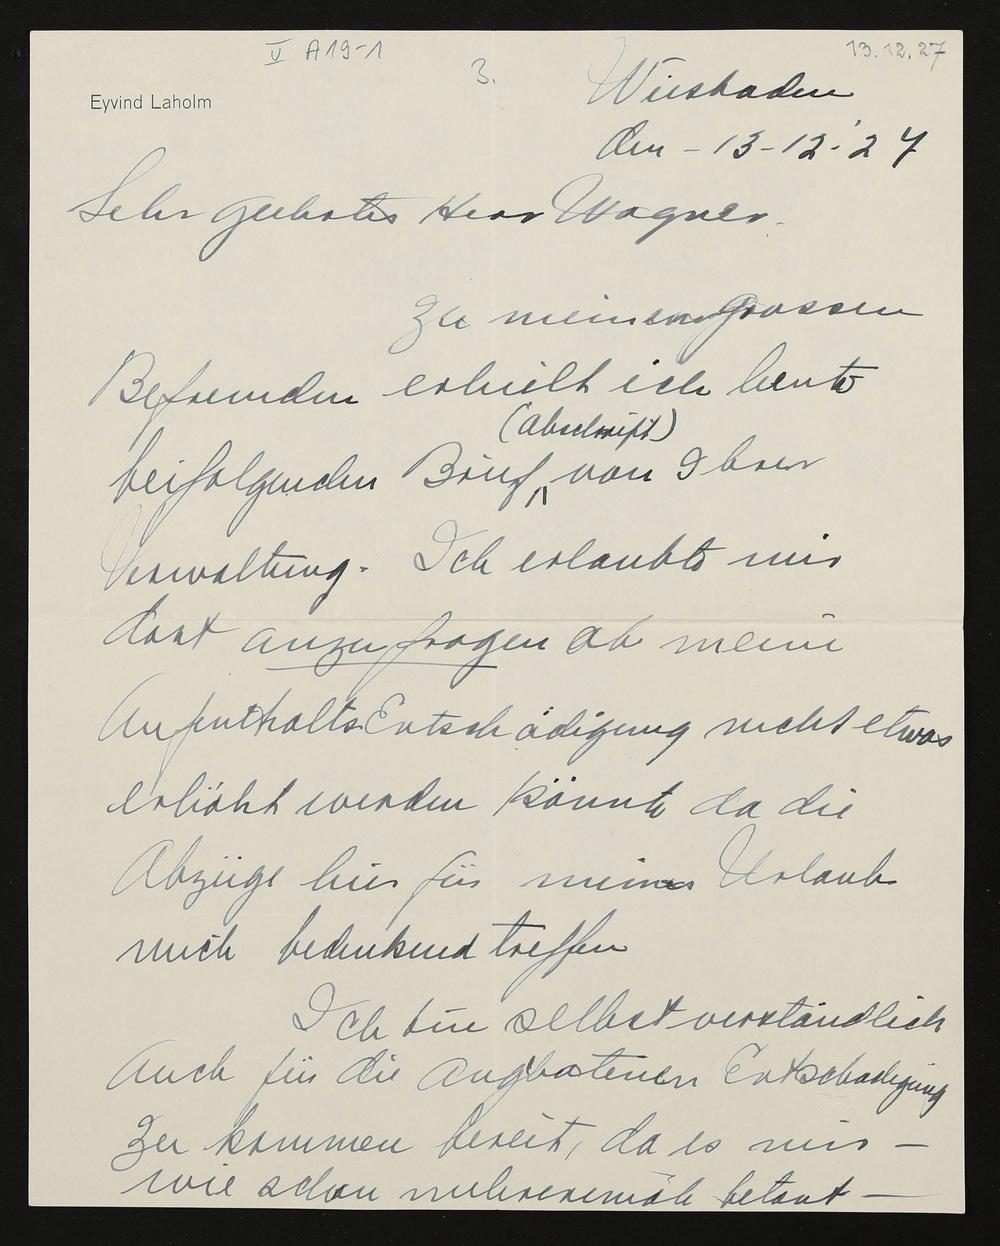 V A19-1
13.12.27
3.
Eyvind Laholm
Wiesbaden
den - 13-12-'27
Sehr geehrter Herr Wagner.
Zu meinem grossen
Befremden erhielt ich heute
(Abschrift)
beifolgenden Brief von Ihrer
Verwaltung. Ich erlaubte mir
dort anzufragen ob meine
AufenthaltsEntschädigung nicht etwas
erhöht werden könnte da die
Abzüge hier für meinen Urlaub
mich bedenkend treffen
Ich bin selbstverständlich
Auch für die angebotenen Entschädigung
Zu kommen bereit, da es mir —
wie schon mehreremale betont —